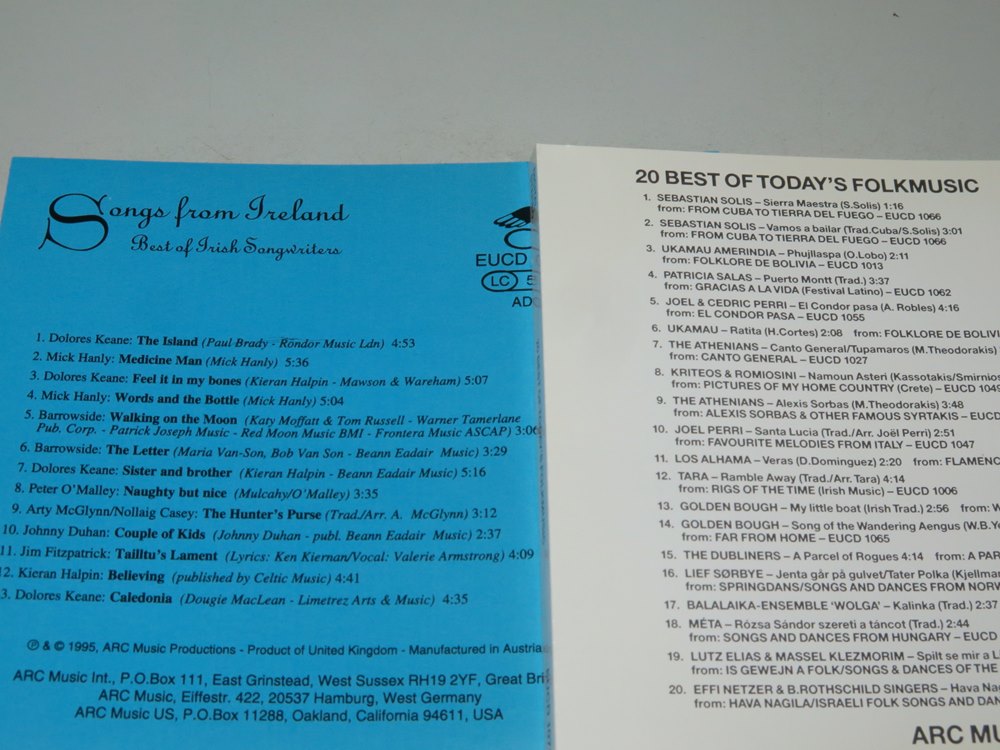 Songs from Ireland
Best of Irish Songwriters
EUCD
LC 5
1. Dolores Keane: The Island (Paul Brady - Rondor Music Ldn) 4:53
2. Mick Hanly: Medicine Man (Mick Hanly) 5:36
3. Dolores Keane: Feel it in my bones (Kieran Halpin - Mawson & Wareham) 5:07
4. Mick Hanly: Words and the Bottle (Mick Hanly) 5:04
5. Barrowside: Walking on the Moon (Katy Moffatt & Tom Russell - Warner Tamerlane
Pub. Corp. - Patrick Joseph Music - Red Moon Music BMI - Frontera Music ASCAP) 3:06
6. Barrowside: The Letter (Maria Van-Son, Bob Van Son - Beann Eadair Music) 3:29
7. Dolores Keane: Sister and brother (Kieran Halpin - Beann Eadair Music) 5:16
8. Peter O'Malley: Naughty but nice (Mulcahy/O'Malley) 3:35
9. Arty McGlynn/Nollaig Casey: The Hunter's Purse (Trad./Arr. A. McGlynn) 3:12
10. Johnny Duhan: Couple of Kids (Johnny Duhan - publ. Beann Eadair Music) 2:37
11. Jim Fitzpatrick: Tailltu's Lament (Lyrics: Ken Kiernan/Vocal: Valerie Armstrong) 4:09
12. Kieran Halpin: Believing (published by Celtic Music) 4:41
3. Dolores Keane: Caledonia (Dougie MacLean - Limetrez Arts & Music) 4:35
℗ & © 1995, ARC Music Productions - Product of United Kingdom - Manufactured in Austria
ARC Music Int., P.O.Box 111, East Grinstead, West Sussex RH19 2YF, Great Brit
ARC Music, Eiffestr. 422, 20537 Hamburg, West Germany
ARC Music US, P.O.Box 11288, Oakland, California 94611, USA
20 BEST OF TODAY'S FOLKMUSIC
1. SEBASTIAN SOLIS – Sierra Maestra (S.Solis) 1:16
from: FROM CUBA TO TIERRA DEL FUEGO – EUCD 1066
2. SEBASTIAN SOLIS – Vamos a bailar (Trad.Cuba/S.Solis) 3:01
from: FROM CUBA TO TIERRA DEL FUEGO – EUCD 1066
3. UKAMAU AMERINDIA – Phujllaspa (O.Lobo) 2:11
from: FOLKLORE DE BOLIVIA – EUCD 1013
4. PATRICIA SALAS – Puerto Montt (Trad.) 3:37
from: GRACIAS A LA VIDA (Festival Latino) – EUCD 1062
5. JOEL & CEDRIC PERRI – El Condor pasa (A. Robles) 4:16
from: EL CONDOR PASA – EUCD 1055
6. UKAMAU – Ratita (H.Cortes) 2:08 from: FOLKLORE DE BOLIVI
7. THE ATHENIANS – Canto General/Tupamaros (M.Theodorakis)
from: CANTO GENERAL – EUCD 1027
8. KRITEOS & ROMIOSINI – Namoun Asteri (Kassotakis/Smirnios
from: PICTURES OF MY HOME COUNTRY (Crete) – EUCD 1049
9. THE ATHENIANS – Alexis Sorbas (M.Theodorakis) 3:48
from: ALEXIS SORBAS & OTHER FAMOUS SYRTAKIS – EUCD
10. JOEL PERRI – Santa Lucia (Trad./Arr. Joël Perri) 2:51
from: FAVOURITE MELODIES FROM ITALY – EUCD 1047
11. LOS ALHAMA – Veras (D.Dominguez) 2:20 from: FLAMENC
12. TARA – Ramble Away (Trad./Arr. Tara) 4:14
from: RIGS OF THE TIME (Irish Music) – EUCD 1006
13. GOLDEN BOUGH – My little boat (Irish Trad.) 2:56 from: W
14. GOLDEN BOUGH – Song of the Wandering Aengus (W.B.Ye
from: FAR FROM HOME – EUCD 1065
15. THE DUBLINERS – A Parcel of Rogues 4:14 from: A PAR
16. LIEF SØRBYE – Jenta går på gulvet/Tater Polka (Kjellmar
from: SPRINGDANS/SONGS AND DANCES FROM NORW
17. BALALAIKA-ENSEMBLE 'WOLGA' – Kalinka (Trad.) 2:37
18. MÉTA – Rózsa Sándor szereti a táncot (Trad.) 2:44
from: SONGS AND DANCES FROM HUNGARY – EUCD
19. LUTZ ELIAS & MASSEL KLEZMORIM – Spilt se mir a L
from: IS GEWEJN A FOLK/SONGS & DANCES OF THE
20. EFFI NETZER & B.ROTHSCHILD SINGERS – Hava Nag
from: HAVA NAGILA/ISRAELI FOLK SONGS AND DAN
ARC MU